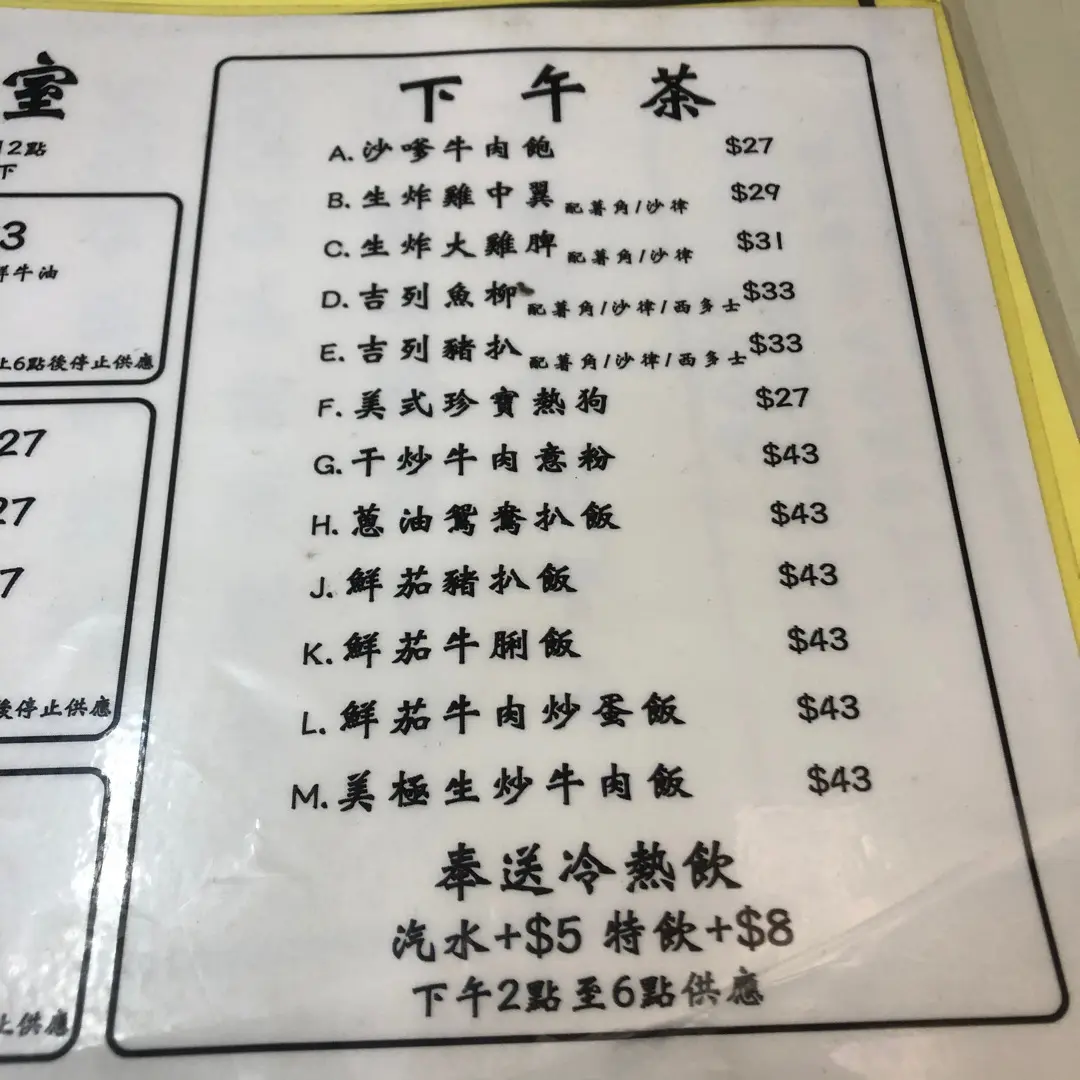 室
12點
下
3
鮮牛油
止6點後停止供應
27
27
7
後停止供應
止供應
下午茶
A. 沙嗲牛肉飽 $27
B. 生炸雞中翼 配薯角/沙律 $29
C. 生炸大雞脾 配薯角/沙律 $31
D. 吉列魚柳 配薯角/沙律/西多士 $33
E. 吉列豬扒 配薯角/沙律/西多士 $33
F. 美式珍寶熱狗 $27
G. 干炒牛肉意粉 $43
H. 蔥油鴛鴦扒飯 $43
J. 鮮茄豬扒飯 $43
K. 鮮茄牛脷飯 $43
L. 鮮茄牛肉炒蛋飯 $43
M. 美極生炒牛肉飯 $43
奉送冷熱飲
汽水+$5 特飲+$8
下午2點至6點供應